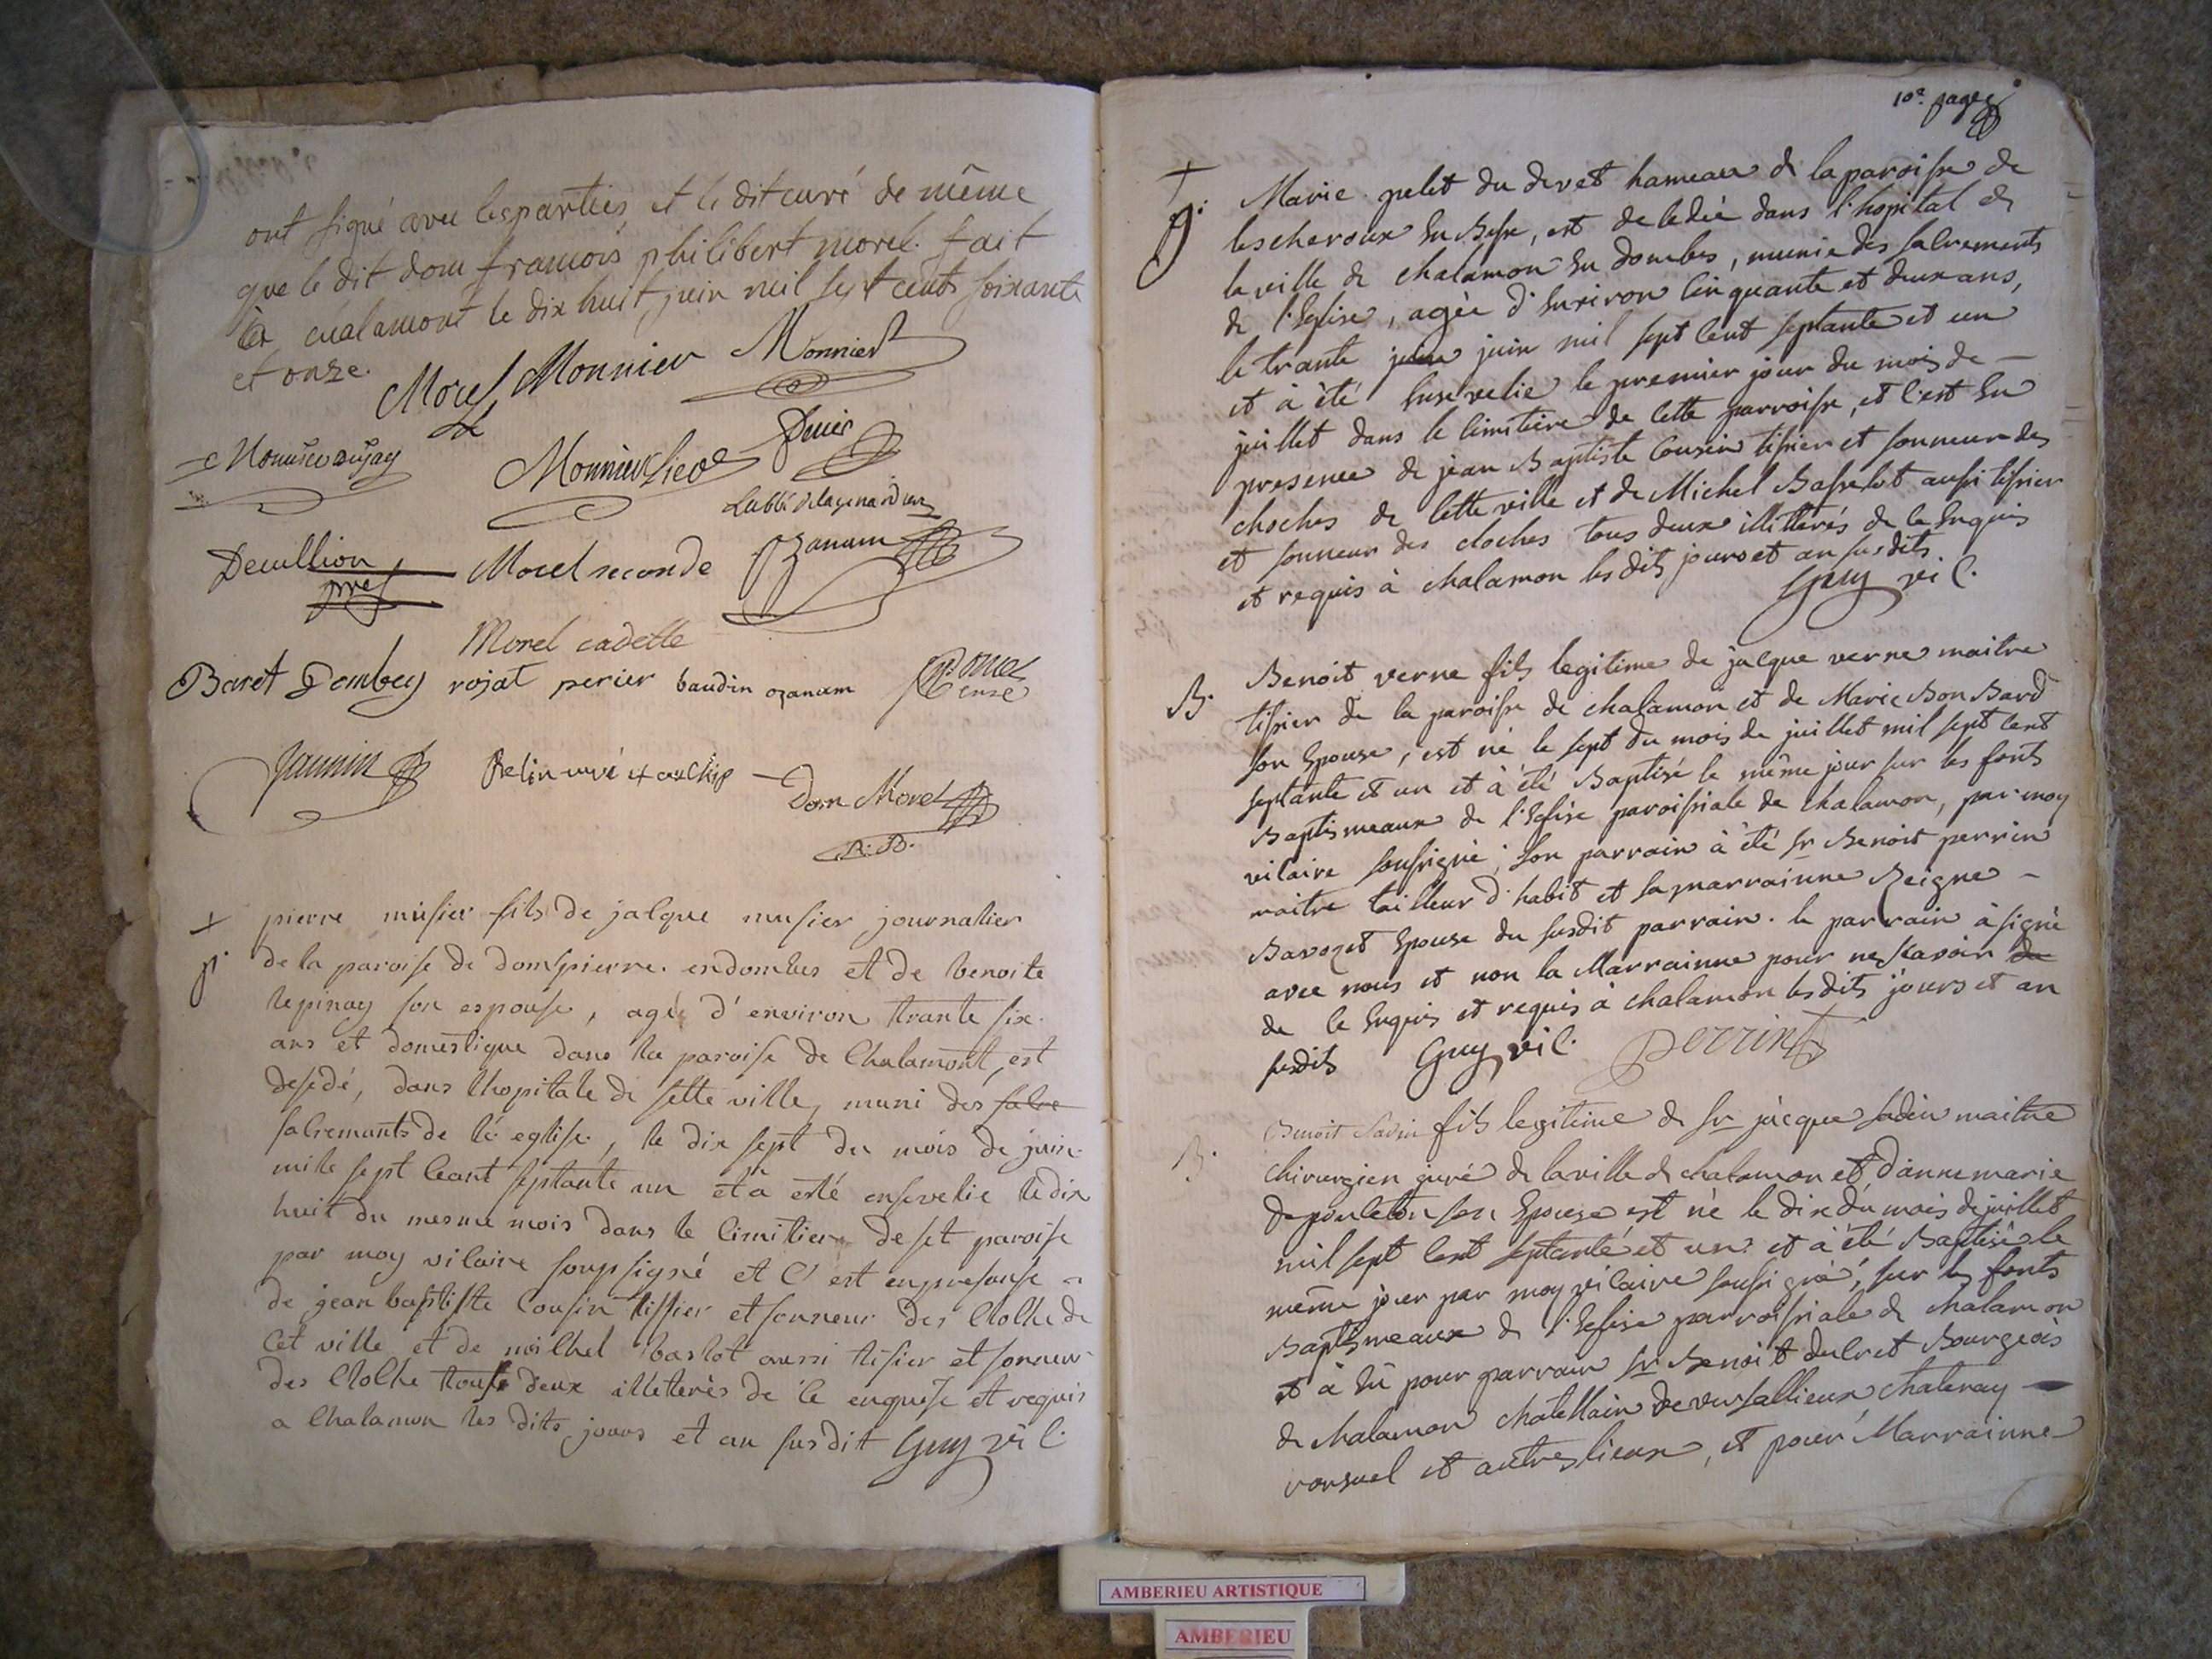 ont signé avec les parties et le dit curé de même
que le dit dom francois philibert morel. fait
à chalamont le dix huit juin mil sept cents soixante
et onze.
Morel Monnier Monnier
Monnier
Decullion
pre
Morel seconde
ozanam
Morel cadette
Baret Dombey rojat perier baudin ozanam
Jannin
Belin curé
Dom Morel
R: B.
+ pierre musier fils de jalque musier journallier
de la paroise de dompierre. en dombes et de benoite
lepinay son espouse, agé d'environ trante six.
ans et domestique dans la paroise de Chalamont, est
desedé, dans lhopitale de sette ville, muni des salre
salremants de lé eglise, le dix sept du mois de juin
mile sept Ceant septante un et a esté ensevelie le dix
huit du mesme mois dans le Cimitier de set paroise
par moy vilaire soupsigné et C'est enpresanse
de jean baptiste Cousin tissier et sonneur des Clolhe de
Cet ville et de milhel baslot aussi tisier et soneur
des Clolhe tous deux illeterés de Ce enquise et requis
a Chalamon les dits jours et an susdit Guy vic.
10e page
+ Marie pelet du devet hameau de la paroisse de
lescheroux En Bresse, est decedée dans l'hopital de
la ville de chalamon En dombes, munie des sacrements
de l'Eglise, agée d'Environ Cinquante et deux ans,
le trante juin juin mil sept Cent septante et un
et à été Ensevelie le premier jour du mois de
juillet dans le Cimitiere de Cette parroisse, et C'est En
presence de jean Baptiste Cousin tissier et sonneur des
choches de Cette ville et de Michel Basselot aussi tissier
et sonneur des cloches tous deux illitterés de Ce Enquis
et requis à chalamon les dits jours et an susdits.
Guy vic.
B. Benoit verne fils legitime de jacque verne maitre
tissier de la paroisse de chalamon et de Marie Bon Bard
son Epouse, est né le sept du mois de juillet mil sept Cent
septante et un et à été Baptisé le même jour sur les fonts
Baptismeaux de l'Eglise paroissiale de chalamon, par moy
vicaire soussigné; son parrain à été Sr Benoit perrin
maitre tailleur d'habit et sa marrainne Reigne
Bavozet Epouse du susdit parrain. le parrain à signé
avec nous et non la Marrainne pour ne scavoir de
de Ce Enquis et requis à chalamon les dits jours et an
susdits Guy vic. perrin
B. Benoit Sadin fils legitime de Sr jacque sadin maitre
chirurgien juré de la ville de chalamon et d'anne marie
Depouleton son Epouse est né le dix du mois de juillet
mil sept Cent septante et un et à été Baptisé le
même jour par moy vicaire soussigné, sur les fonts
Baptismeaux de l'Eglise parroissiale de chalamon
et à Eu pour parrain Sr Benoit dulret Bourgeois
de chalamon chatellain de versallieux chatenay
ronsuel et autres lieux, et pour Marrainne
AMBERIEU ARTISTIQUE
AMBERIEU